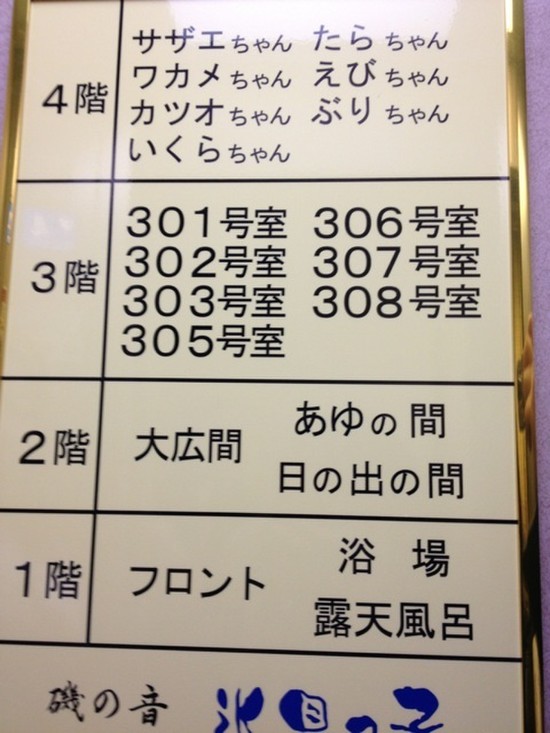 4階
サザエちゃん たらちゃん
ワカメちゃん えびちゃん
カツオちゃん ぶりちゃん
いくらちゃん
3階
301号室 306号室
302号室 307号室
303号室 308号室
305号室
2階
大広間
あゆの間
日の出の間
1階
フロント
浴 場
露天風呂
磯の音